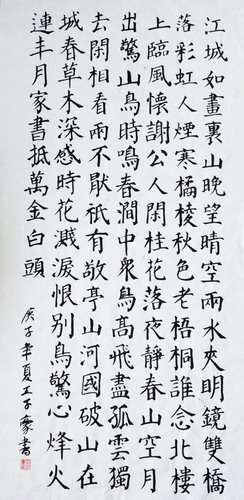 江城如畫裏山晚望晴空兩水夾明鏡雙橋
落彩虹人煙寒橘棱秋色老梧桐誰念北樓
上臨風懷謝公人閑桂花落夜靜春山空月
出驚山鳥時鳴春澗中衆鳥高飛盡孤雲獨
去閑相看兩不厭祇有敬亭山河國破山在
城春草木深感時花濺淚恨别鳥驚心烽火
連丰月家書抵萬金白頭
庚子年夏王子豪書